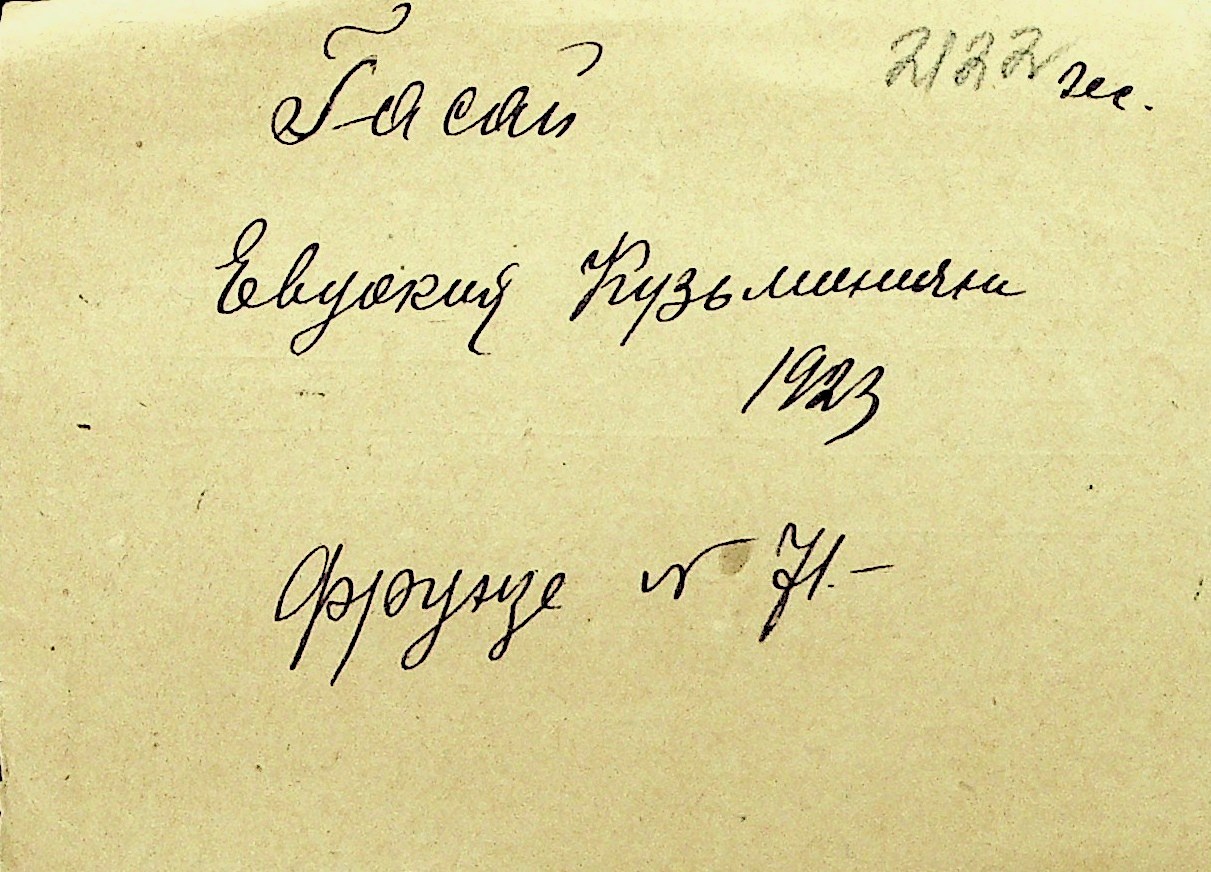 2122 ж.
Гасай
Евдокия Кузьминична
1923
Фрунзе № 71.-